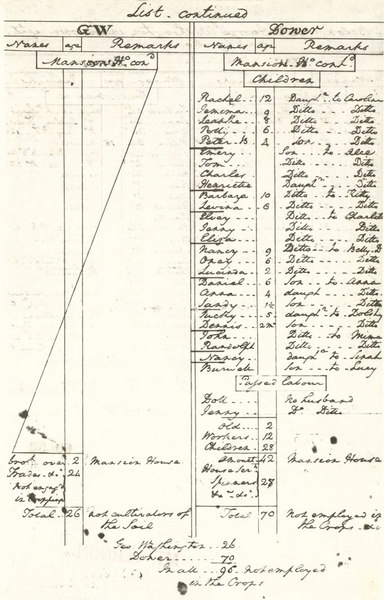 List continued
GW
Dower
Names age Remarks Names age Remarks
Mansion Ho. con'd Mansion Ho. cont'd
Children
Rachel 12 Daught'r to Caroline
Jemima 9 Ditto Ditto
Leanthe 8 Ditto Ditto
Polly 6 Ditto Ditto
Peter. B 4 Son Ditto
Emery Son to Alce
Tom Ditto Ditto
Charles Ditto Ditto
Henriette Daught'r Ditto
Barbara 10 Ditto to Kitty
Levina 6 Ditto Ditto
Elvey Ditto to Charlotte
Jenny Ditto Ditto
Eliza Ditto Ditto
Nancy 9 Ditto to Betty D
Oney 6 Ditto Ditto
Lucinda 2 Ditto Ditto
Daniel 6 Son to Anna
Anna 4 daught'r Ditto
Sandy 1½ Son Ditto
Sucky 5 daught'r to Dolshy
Dennis 2m Son Ditto
John Ditto to Mima
Randolph Ditto Ditto
Nancy daught'r to Sinah
Burwell Son to Lucy
Passed Labour
Doll no husband
Jenny Do Ditto
old 2
Workers 12
Children 28
brot over 2 Mansion House Amount 42 Mansion House
Trades &c 24 House Serv'ts
not engag'd Spinners 28
in Cropping &c &c
Total 26 not cultivators of Total 70 not employed in
the Soil the Crops &c
Geo Washington 26
Dower 70
In all 96 not employed
in the Crops